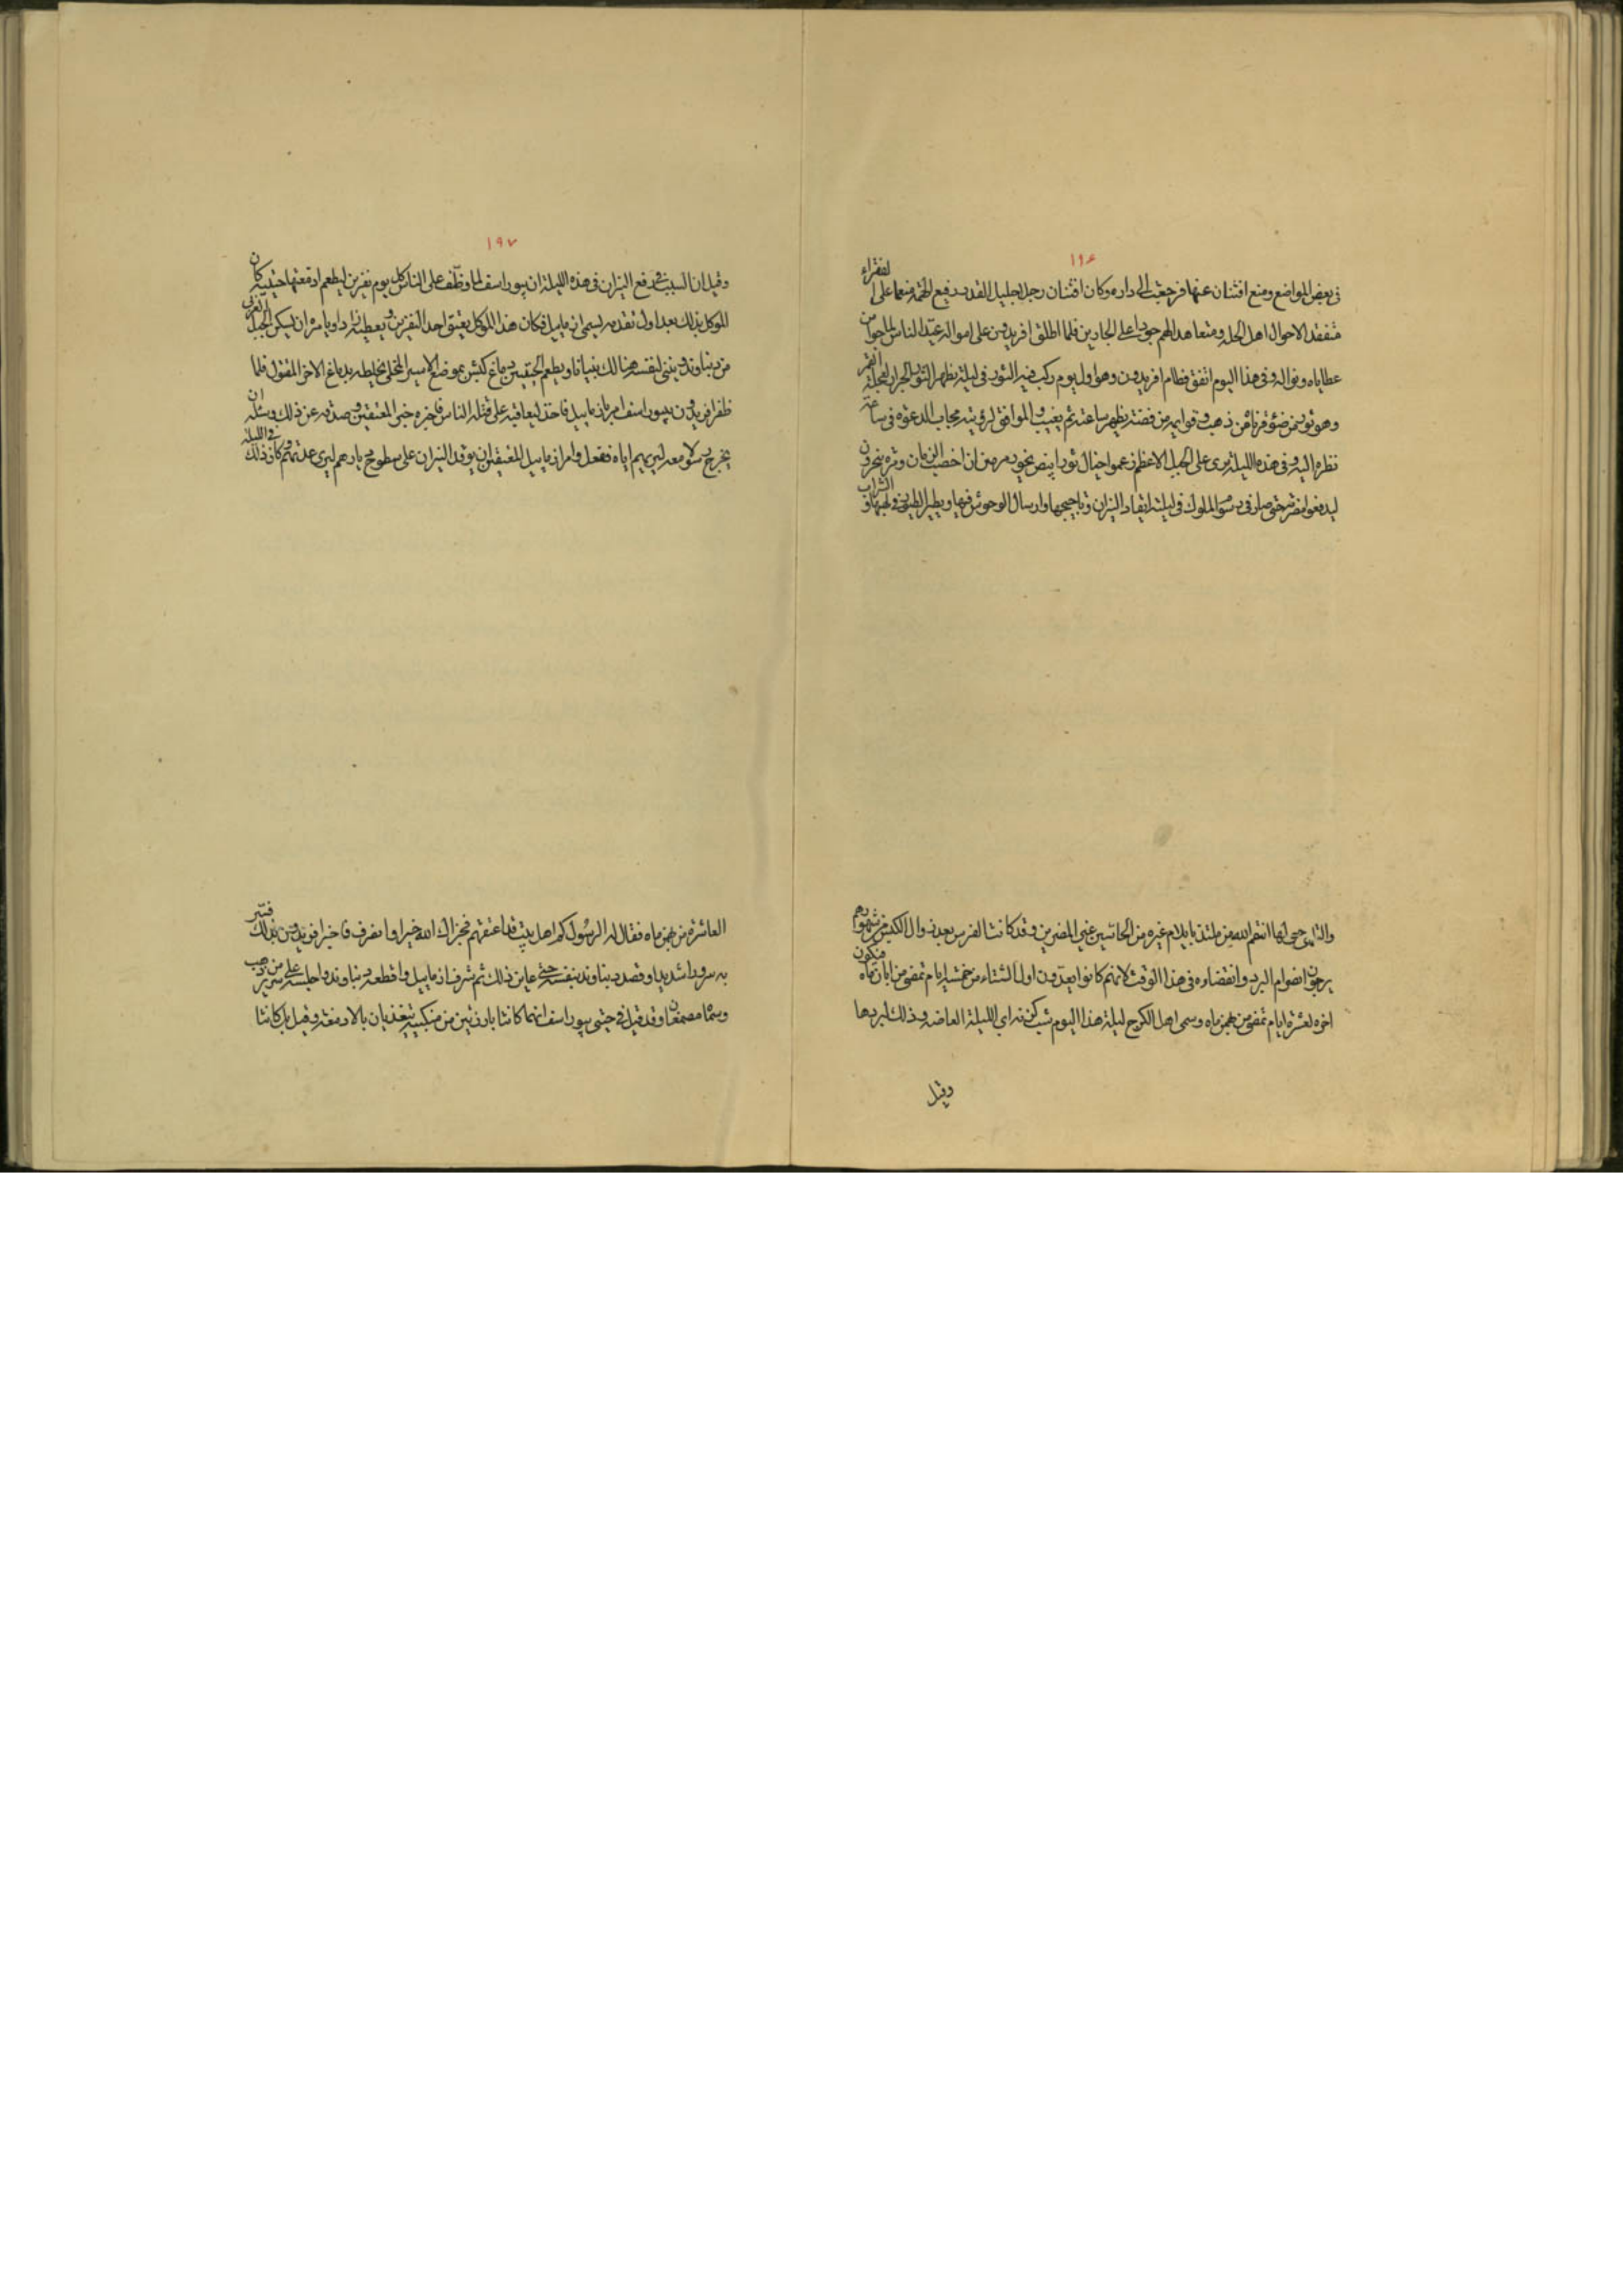 ١٩٦
فى بعض المواضع ومنع اثفيان عنها فرجعت الى داره وكان اثفيان رجلا جليل القدر رفيع الهمة منعما على الفقراء
متفقد الاحوال اهل الحلة ومتعاهدا لهم جوادا على الجادين فلما اطلق افريدون على امواله عيّد الناس لما رجوا من
عطاياه ونواله وفى هذا اليوم اتفق فطام افريدون وهو اول يوم ركب فيه الثور فى ليلة يظهر الثور الجرار لعجلة القمر
وهو ثور من ضوء قرناه من ذهب وقوايمه من فضة يظهر ساعة ثم يغيب والموافق لرؤيته مجاب الدعوة فى ساعة
نظره اليه وفى هذه الليلة يرى على الجبل الاعظم زعموا خيال ثور ابيض يخور مرتين ان اخصب الزمان ومرة
ليدفعوا مضرته حتى صار فى رسوم الملوك فى ليلته ايقاد النيران وتاجيجها وارسال الوحوش فيها وتطيير الطيور فى لهبها والشراب
والتلهى حولها انتقم الله من ملتذ بايلام غيره من الحاسين غير المضرين وقد كانت الفرس بعد زوال الكبس من شهورهم
يرجون انصرام البرد وانقضاءه فى هذا الوقت لانهم كانوا يعدّون اول الشتاء من خمسة ايام تمضى من ابان ماه فيكون
اخره لعشرة ايام تمضى من بهمن ماه وسمى اهل الكرج ليلة هذا اليوم شب كزنه اى الليلة العاضة وذلك لبردها
وقيل
١٩٧
وقيل ان السبب فى رفع النيران فى هذه الليلة ان بيوراسف لما وظّف على الناس كل يوم نفرين ليطعم ادمغتهما حيتيه كان
الموكل بذلك بعد اول تقدمه يسمى ازماييل فكان هذا الموكل يعتق احد النفرين ويعطيه زادا ويامره ان يسكن الجبل الغربى
من دنباوند ويبنى لنفسه هنالك بنيانا ويطعم الحيتين دماغ كبش بموضع الاسير المخلى يخلطه بدماغ الاخر المقتول فلما
ظفر افريدون ببيوراسف امر بازماييل فاخذ ليعاقبه على قتله الناس فاخبره خبر المعتقين وصدقه عن ذلك وسئله ان
يخرج رسولا معه ليريهم اياه ففعل وامر ازماييل المعتقين ان يوقد النيران على سطوح ديارهم ليرى عدتهم وكان ذلك فى الليلة
العاشرة من بهمن ماه فقال له الرسول كم اهل بيت قد اعتقتهم فجزاك الله خيرا وانصرف فاخبر افريدون بذلك فسر
به سرورا شديدا وقصد دنباوند بنفسه حتى عاين ذلك ثم شرف ازماييل واقطعه دنباوند واجلسه على سرير من ذهب
وسماه مصمغان وقد قيل فى حيتى بيوراسف انهما كانتا بارزتين من منكبيه تتغذيان بالادمغة وقيل بل كانتا